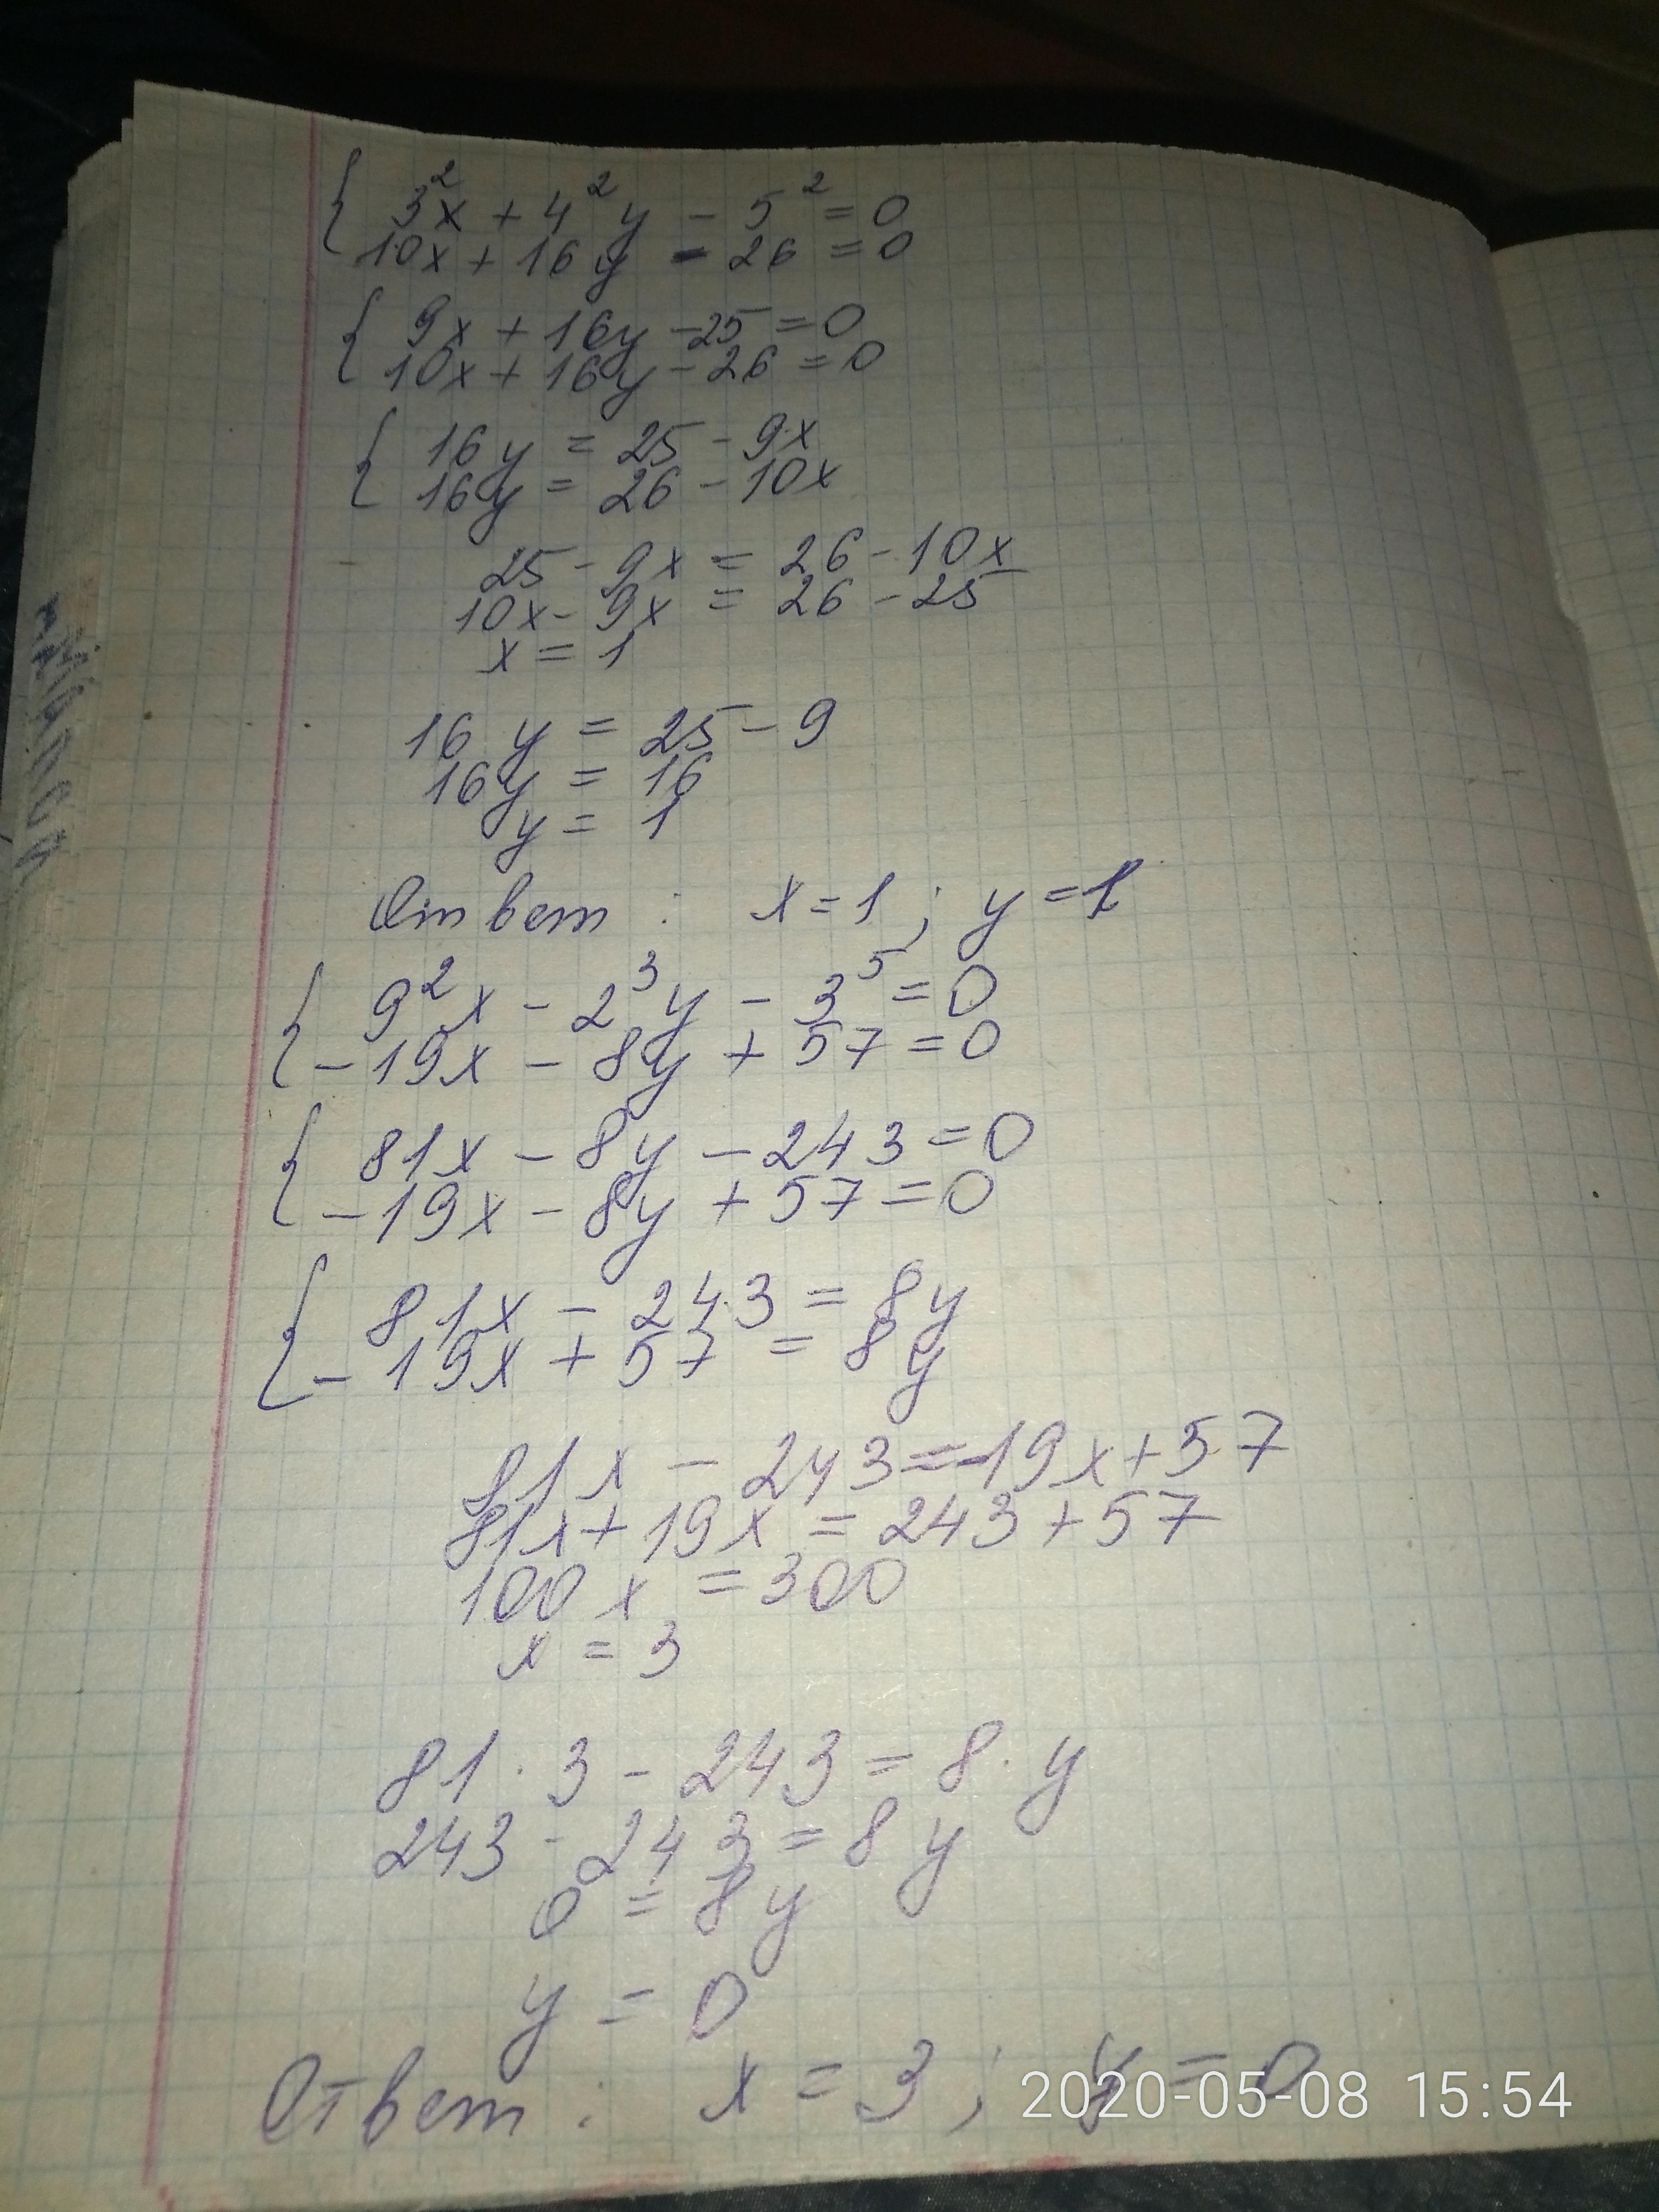 { 3²x + 4²y - 5² = 0
10x + 16y - 26 = 0
{ 9x + 16y - 25 = 0
10x + 16y - 26 = 0
{ 16y = 25 - 9x
16y = 26 - 10x
25 - 9x = 26 - 10x
10x - 9x = 26 - 25
x = 1
16y = 25 - 9
16y = 16
y = 1
Ответ: x = 1; y = 1
{ 9²x - 2³y - 3⁵ = 0
-19x - 8y + 57 = 0
{ 81x - 8y - 243 = 0
-19x - 8y + 57 = 0
{ 81x - 243 = 8y
-19x + 57 = 8y
81x - 243 = -19x + 57
81x + 19x = 243 + 57
100x = 300
x = 3
81 · 3 - 243 = 8 · y
243 - 243 = 8y
0 = 8y
y = 0
Ответ: x = 3; y = 0
2020-05-08 15:54